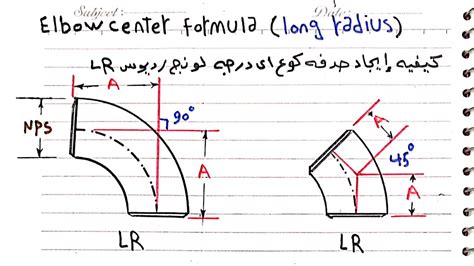 Subject: Date:
Elbow center formula (long radius)
كيفيه إيجاد صدفه كوع اى درجه لونج رديوس LR
A
A
NPS
90°
A
45°
A
LR
LR